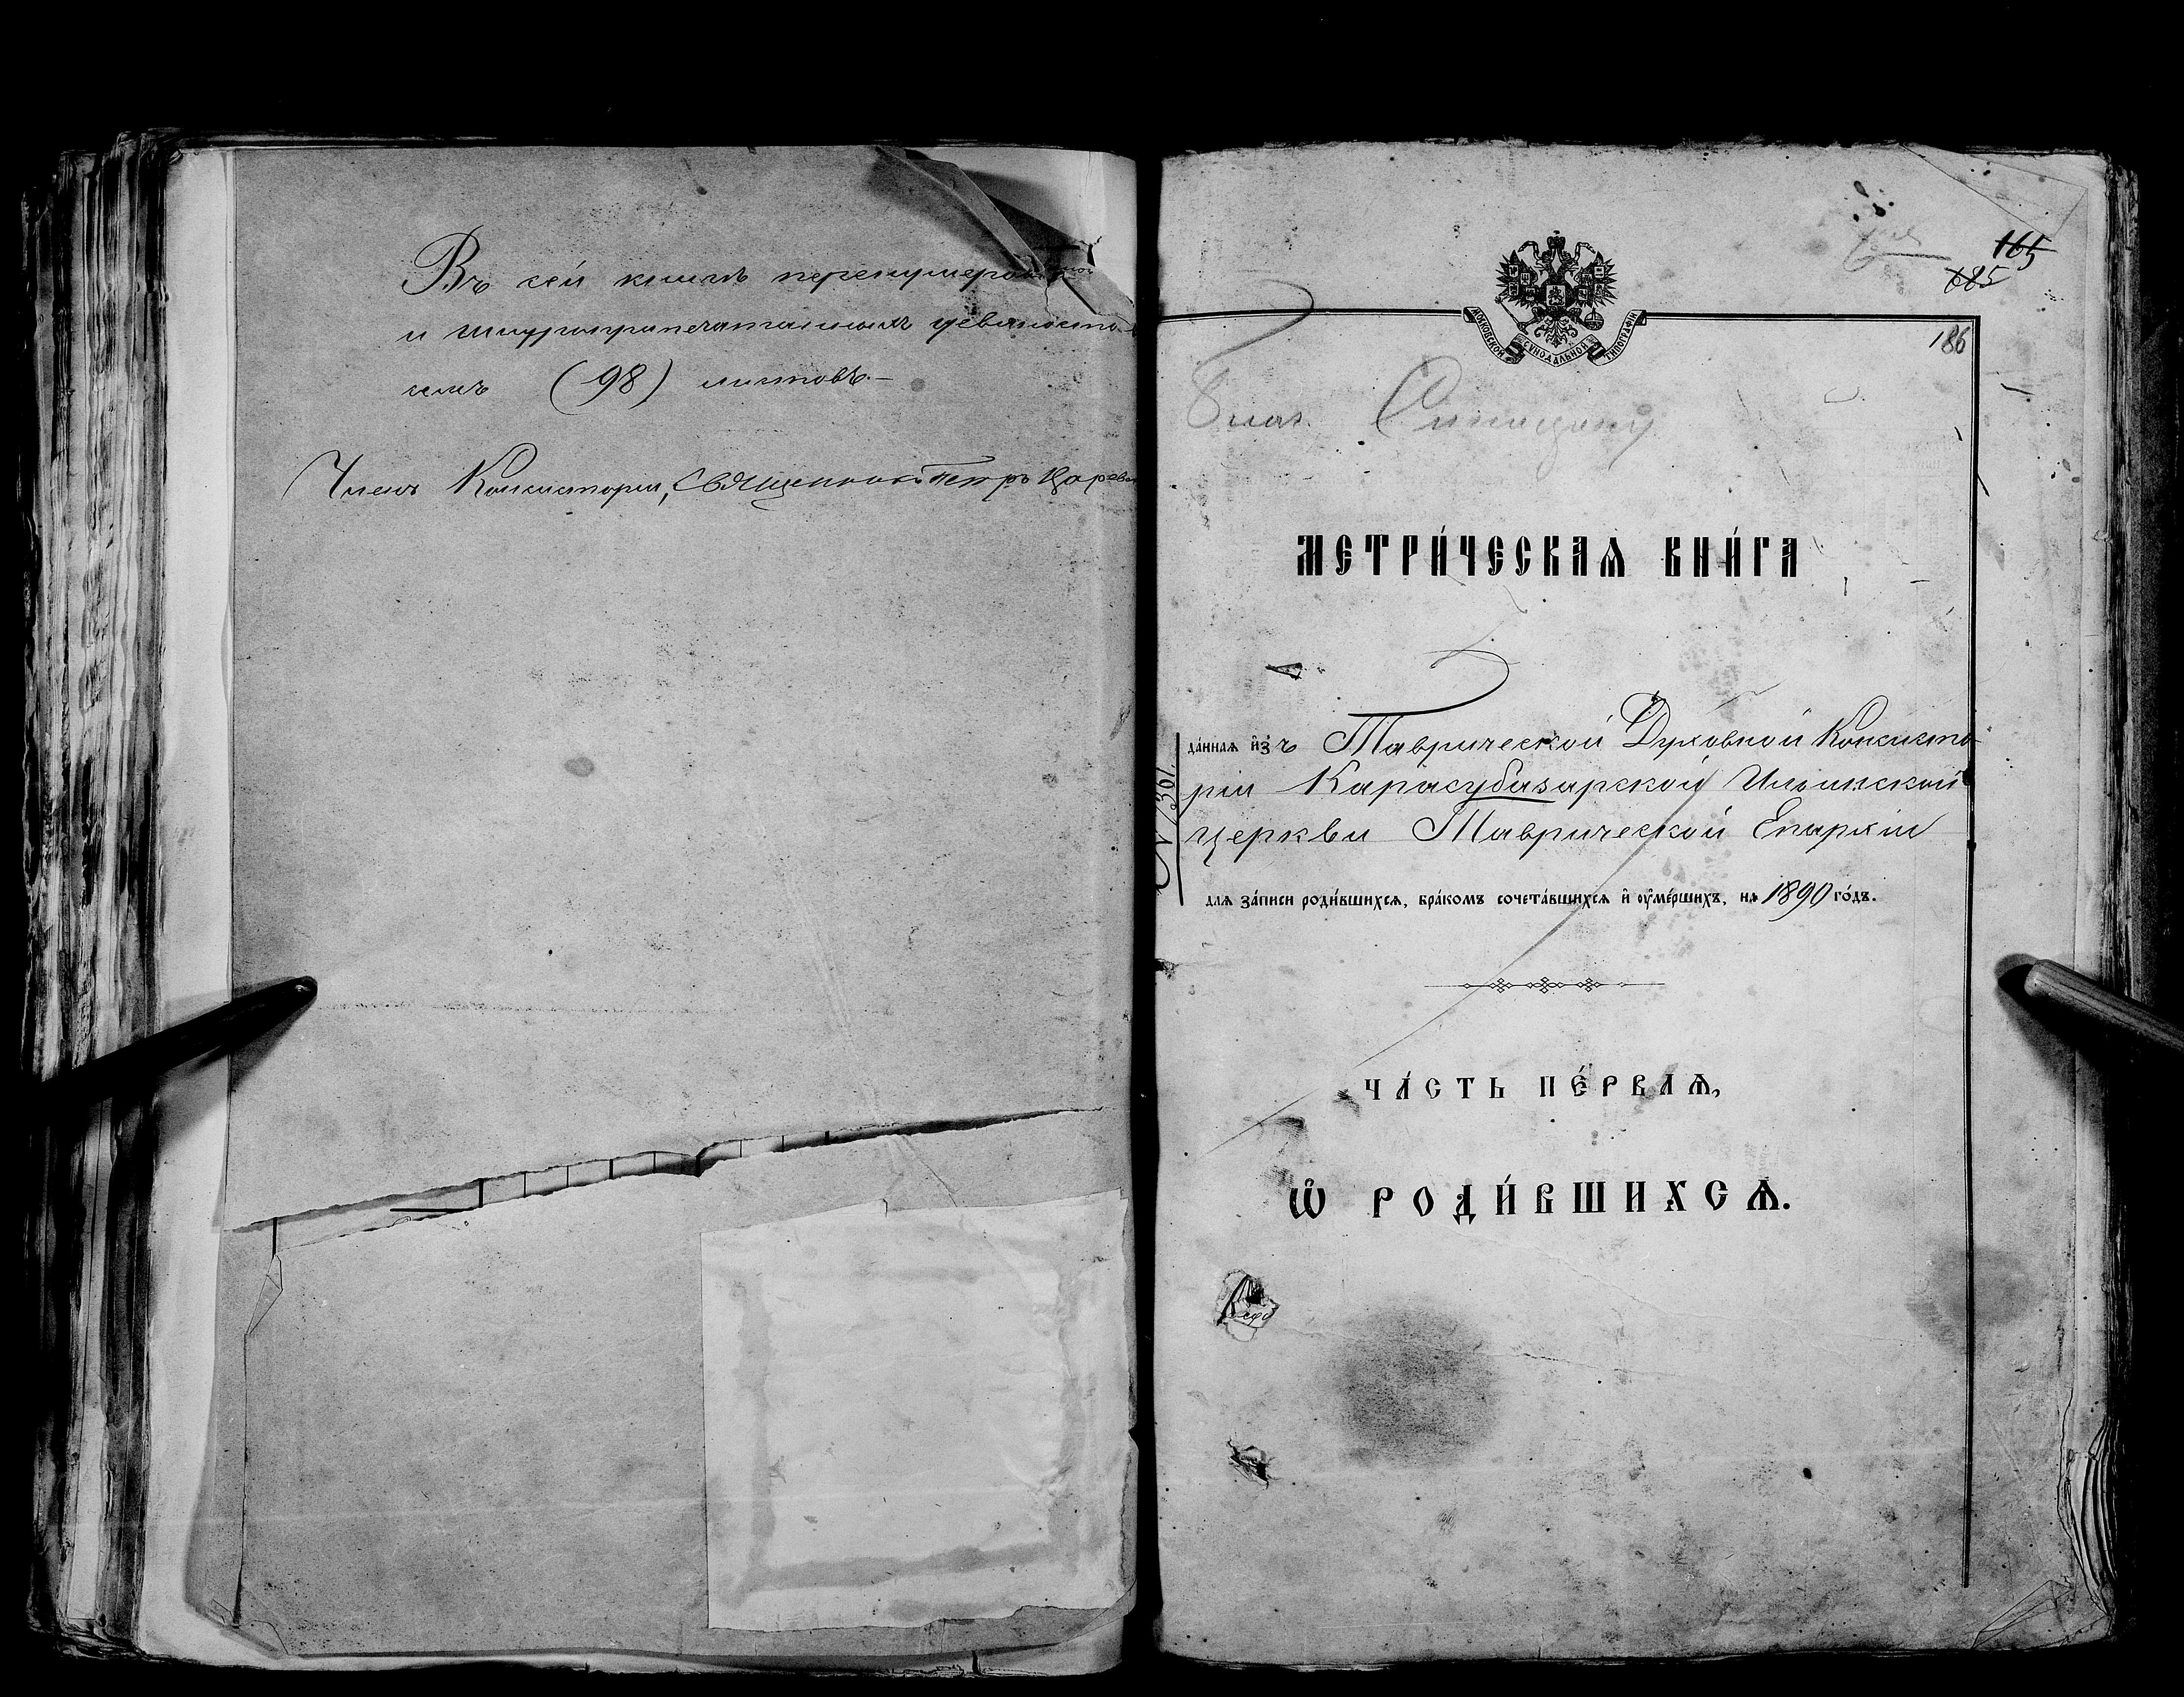 Въ сей книгѣ перенумерова
и шнуроприпечатанныхъ девяносто
семь (98) листовъ.–
Членъ Консисторіи, Священникъ Петръ Царев
165
185
186
МОСКОВСКОЙ СѴНОДАЛЬНОЙ ТИПОГРАФІИ
МЕТРИ́ЧЕСКАѦ КНИ́ГА
да́ннаѧ и҆зъ Таврической Духовной Консисто-
ріи Карасубазарской Ильинской
церкви Таврической Епархіи
N 1361.
для за́писи роди́вшихсѧ, бра́комъ сочета́вшихсѧ и҆ ᲂу҆ме́ршихъ, на 1890 го́дъ.
ЧА́СТЬ ПЕ́РВАѦ,
Ѡ҆ РОДИ́ВШИХСѦ.